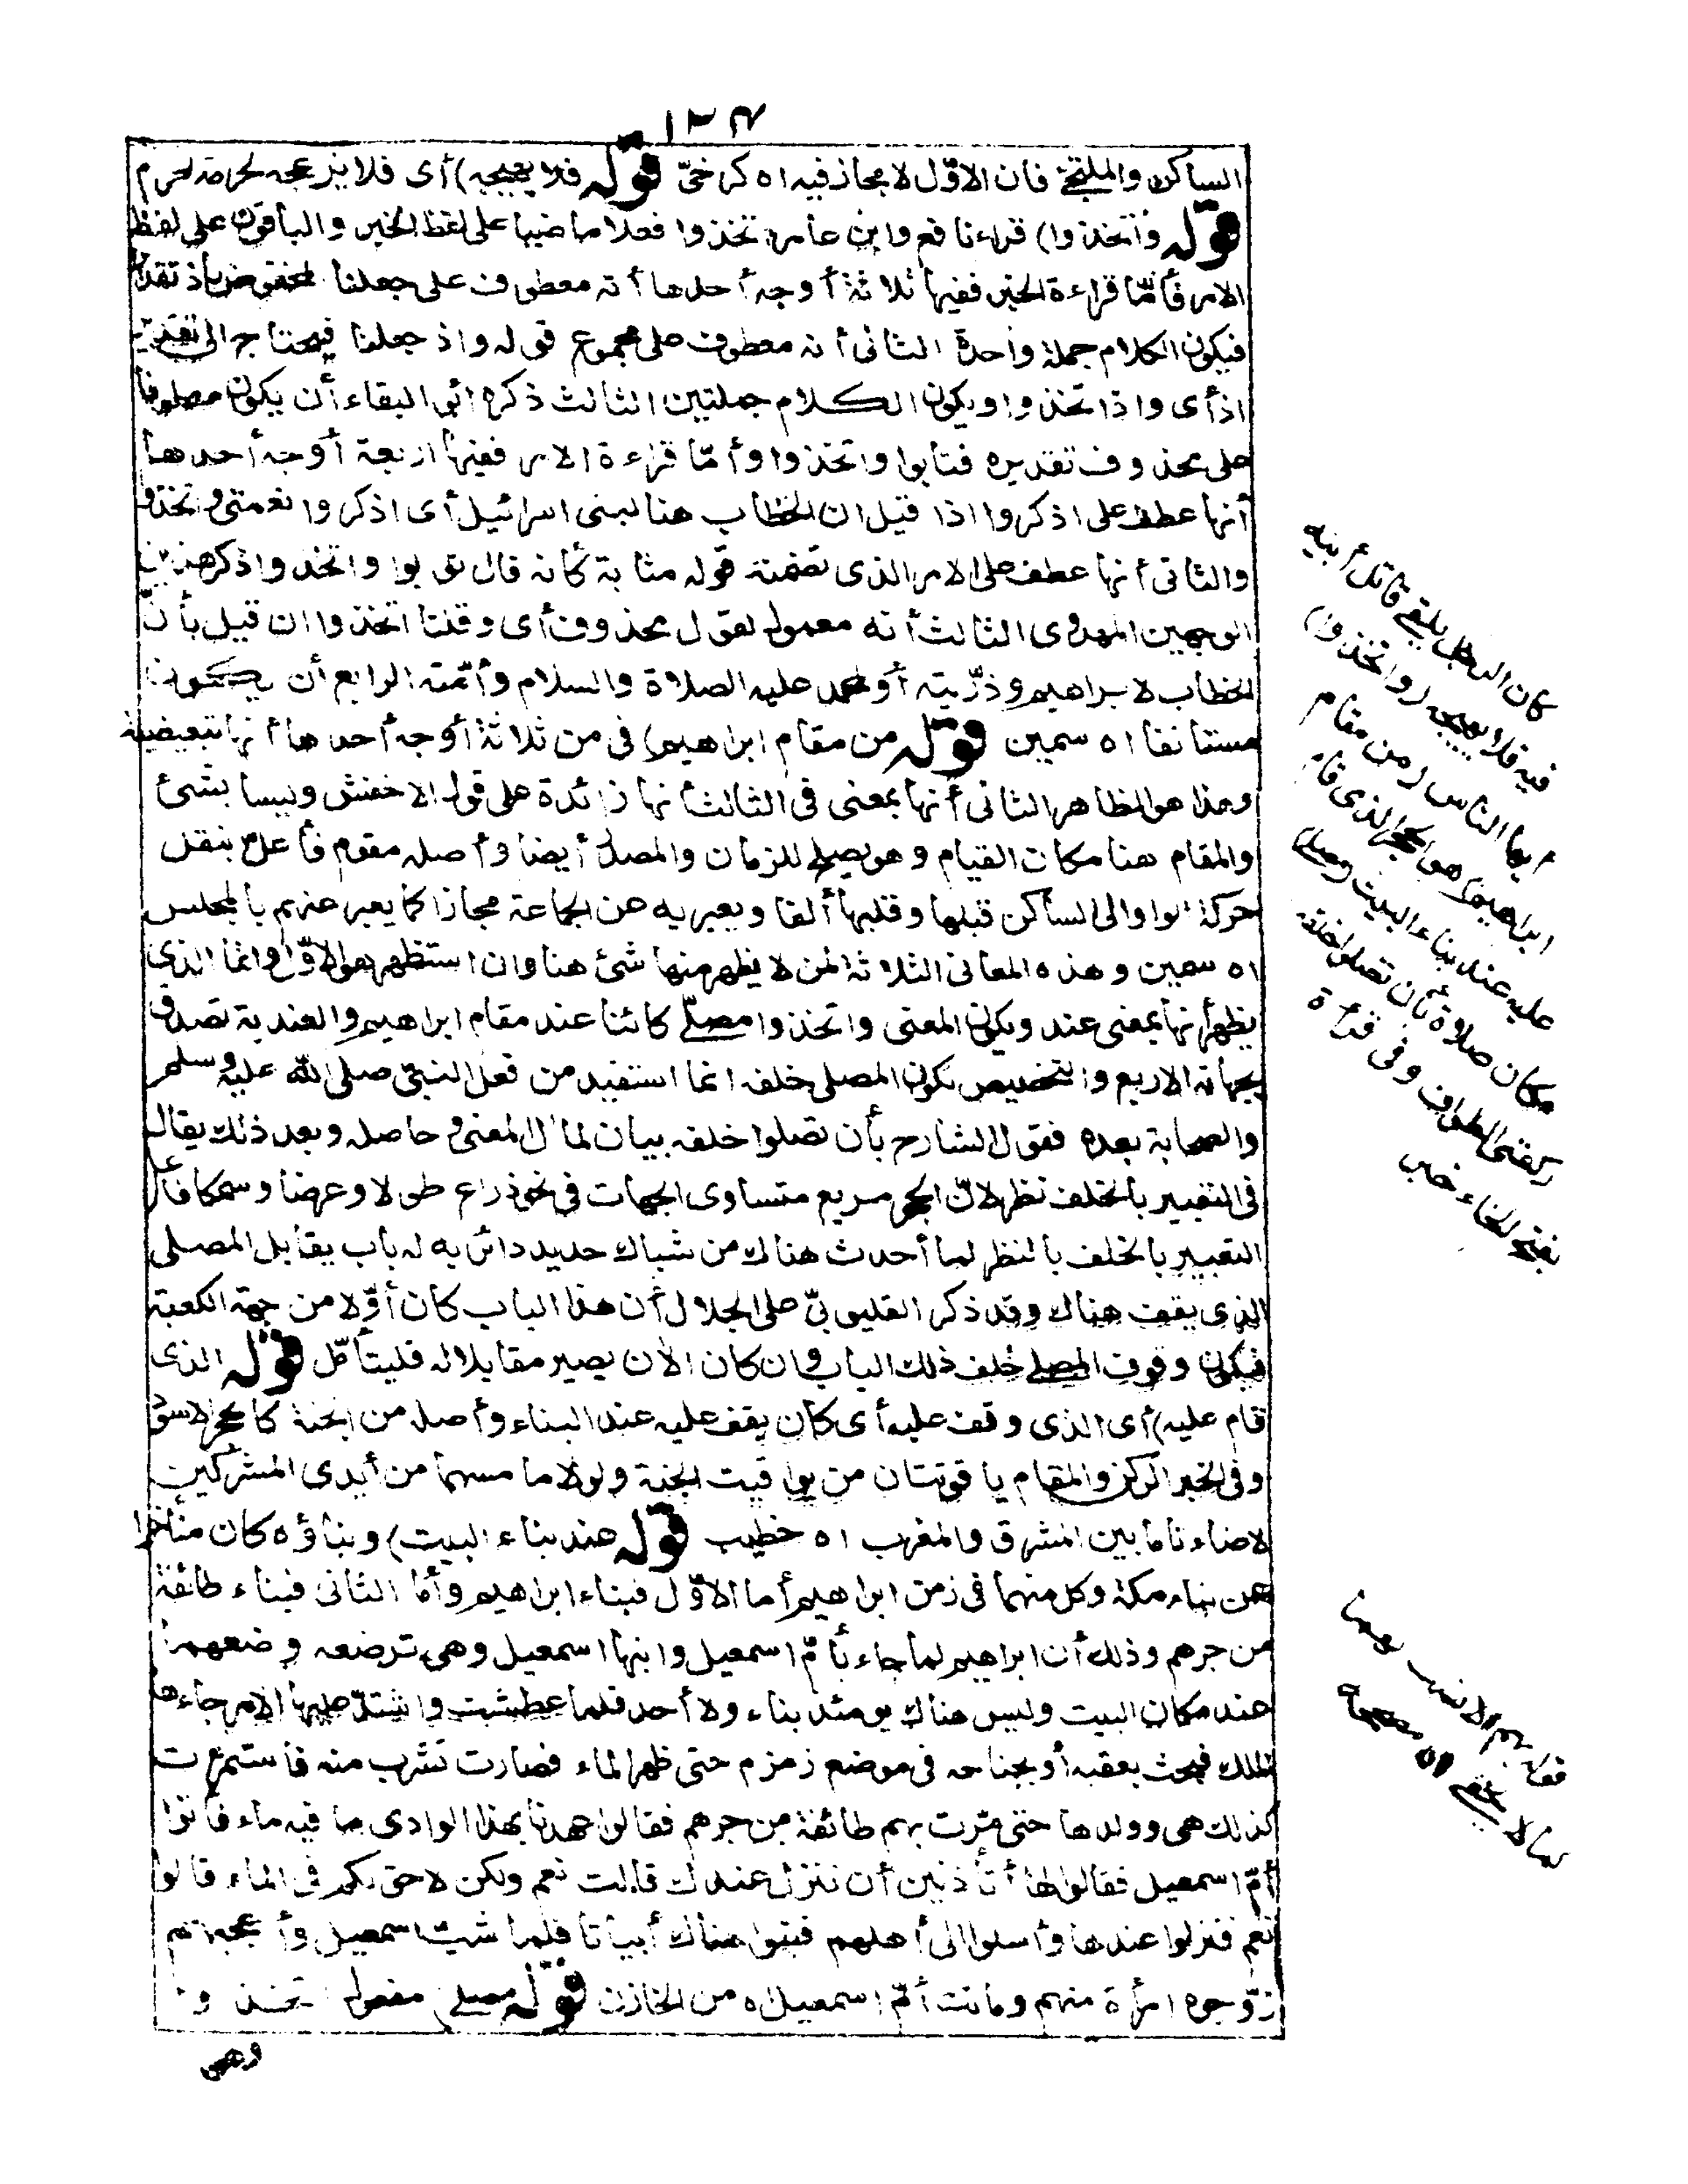 ١٢٤
الساكن والملتجئ فان الاوّل لا مجاز فيه اه كرخىّ قوله فلا يهيجه) أى فلا يزعجه لحرمة الحرم
قوله واتخذوا) قراءنافع وابن عامر واتخذوا فعلا ماضيا على لفظ الخبر والباقون على لفظ
الامر فأمّا قراءة الخبر ففيها ثلاثة أوجه أحدها أنه معطوف على جعلنا المخفوض باذ تقديرا
فيكون الكلام جملة واحدة الثانى أنه معطوف على مجموع قوله واذ جعلنا فيحتاج الى تقدير
اذ أى واذ اتخذوا ويكون الكلام جملتين الثالث ذكره ابو البقاء أن يكون معطوفا
على محذوف تقديره فثابوا واتخذوا وأمّا قراءة الامر ففيها اربعة أوجه أحدها
أنها عطف على اذكروا اذا قيل ان الخطاب هنا لبنى اسرائيل أى اذكروا نعمتى واتخذوا
والثانى أنها عطف على الامر الذى تضمنه قوله مثابة كأنه قال ثوبوا واتخذوا ذكر هذين
الوجهين المهدوى الثالث أنه معمول لقول محذوف أى وقلنا اتخذوا ان قيل بأنّ
الخطاب لابراهيم وذرّيته أو لمحمد عليه الصلاة والسلام وأمّته الرابع أن يكون
مستأنفا اه سمين قوله من مقام ابراهيم) فى من ثلاثة أوجه أحدها أنها تبعيضية
وهذا هو الظاهر الثانى أنها بمعنى فى الثالث أنها زائدة على قول الاخفش وليسا بشئ
والمقام هنا مكان القيام وهو يصلح للزمان والمصدر أيضا وأصله مقوم فأعلّ بنقل
حركة الواو الى الساكن قبلها وقلبها ألفا ويعبر به عن الجماعة مجازا كما يعبر عنهم بالمجلس
اه سمين وهذه المعانى الثلاثة لمن لا يظهر منها شئ هنا وان استظهر هو الاوّل وانما الذى
يظهر أنها بمعنى عند ويكون المعنى واتخذوا مصلّى كائنا عند مقام ابراهيم والعندية تصدق
بجهاته الاربع والتخصيص بكون المصلى خلفه انما استفيد من فعل النبىّ صلى الله عليه وسلم
والصحابة بعده فقول الشارح بأن تصلوا خلفه بيان لمآل المعنى وحاصله وبعد ذلك يقال
فى التعبير بالخلف نظر لانّ الحجر مربع متساوى الجهات فى نحو ذراع طولا وعرضا وسمكا فلعل
التعبير بالخلف بالنظر لما أحدث هناك من شباك حديد دائر به له باب يقابل المصلى
الذى يقف هناك وقد ذكر القليوبىّ على الجلال أن هذا الباب كان أوّلا من جهة الكعبة
فيكون وقوف المصلى خلف ذلك الباب وان كان الآن يصير مقابلا له فليتأمّل قوله الذى
قام عليه) أى الذى وقف عليه أى كان يقف عليه عند البناء وأصله من الجنة كالحجر الاسود
وفى الخبر الركن والمقام ياقوتتان من يواقيت الجنة ولولا ما مسهما من أيدى المشركين
لاضاءتا ما بين المشرق والمغرب اه خطيب قوله عند بناء البيت) وبناؤه كان متأخرا
عن بناء مكة وكل منهما فى زمن ابراهيم أما الاوّل فبناء ابراهيم وأما الثانى فبناء طائفة
من جرهم وذلك أن ابراهيم لما جاء بأمّ اسمعيل وابنها اسمعيل وهى ترضعه وضعهما
عند مكان البيت وليس هناك يومئذ بناء ولا أحد فلما عطشت واشتدّ عليها الامر جاءها
الملك فبحث بعقبه أو بجناحه فى موضع زمزم حتى ظهر الماء فصارت تشرب منه فاستمرت
كذلك هى وولدها حتى مرّت بهم طائفة من جرهم فقالوا عهدنا بهذا الوادى ما فيه ماء فأتوا
أمّ اسمعيل فقالوا لها أتأذنين أن ننزل عندك قالت نعم ولكن لا حق لكم فى الماء قالوا
نعم فنزلوا عندها وأرسلوا الى أهلهم فبنوا هناك أبياتا فلما شبّ اسمعيل وأعجبهم
زوّجوه امرأة منهم وماتت أمّ اسمعيل اه من الخازن قوله مصلى) مفعول اتخذوا
وهى
كان الرجل يلقى قاتل أبيه
فيه فلا يهيجه (واتخذوا)
أيها الناس (من مقام
ابراهيم) هو الحجر الذى قام
عليه عند بناء البيت (مصلى)
مكان صلاة بأن تصلوا خلفه
ركعتى الطواف وفى قراءة
بفتح الخاء خبر